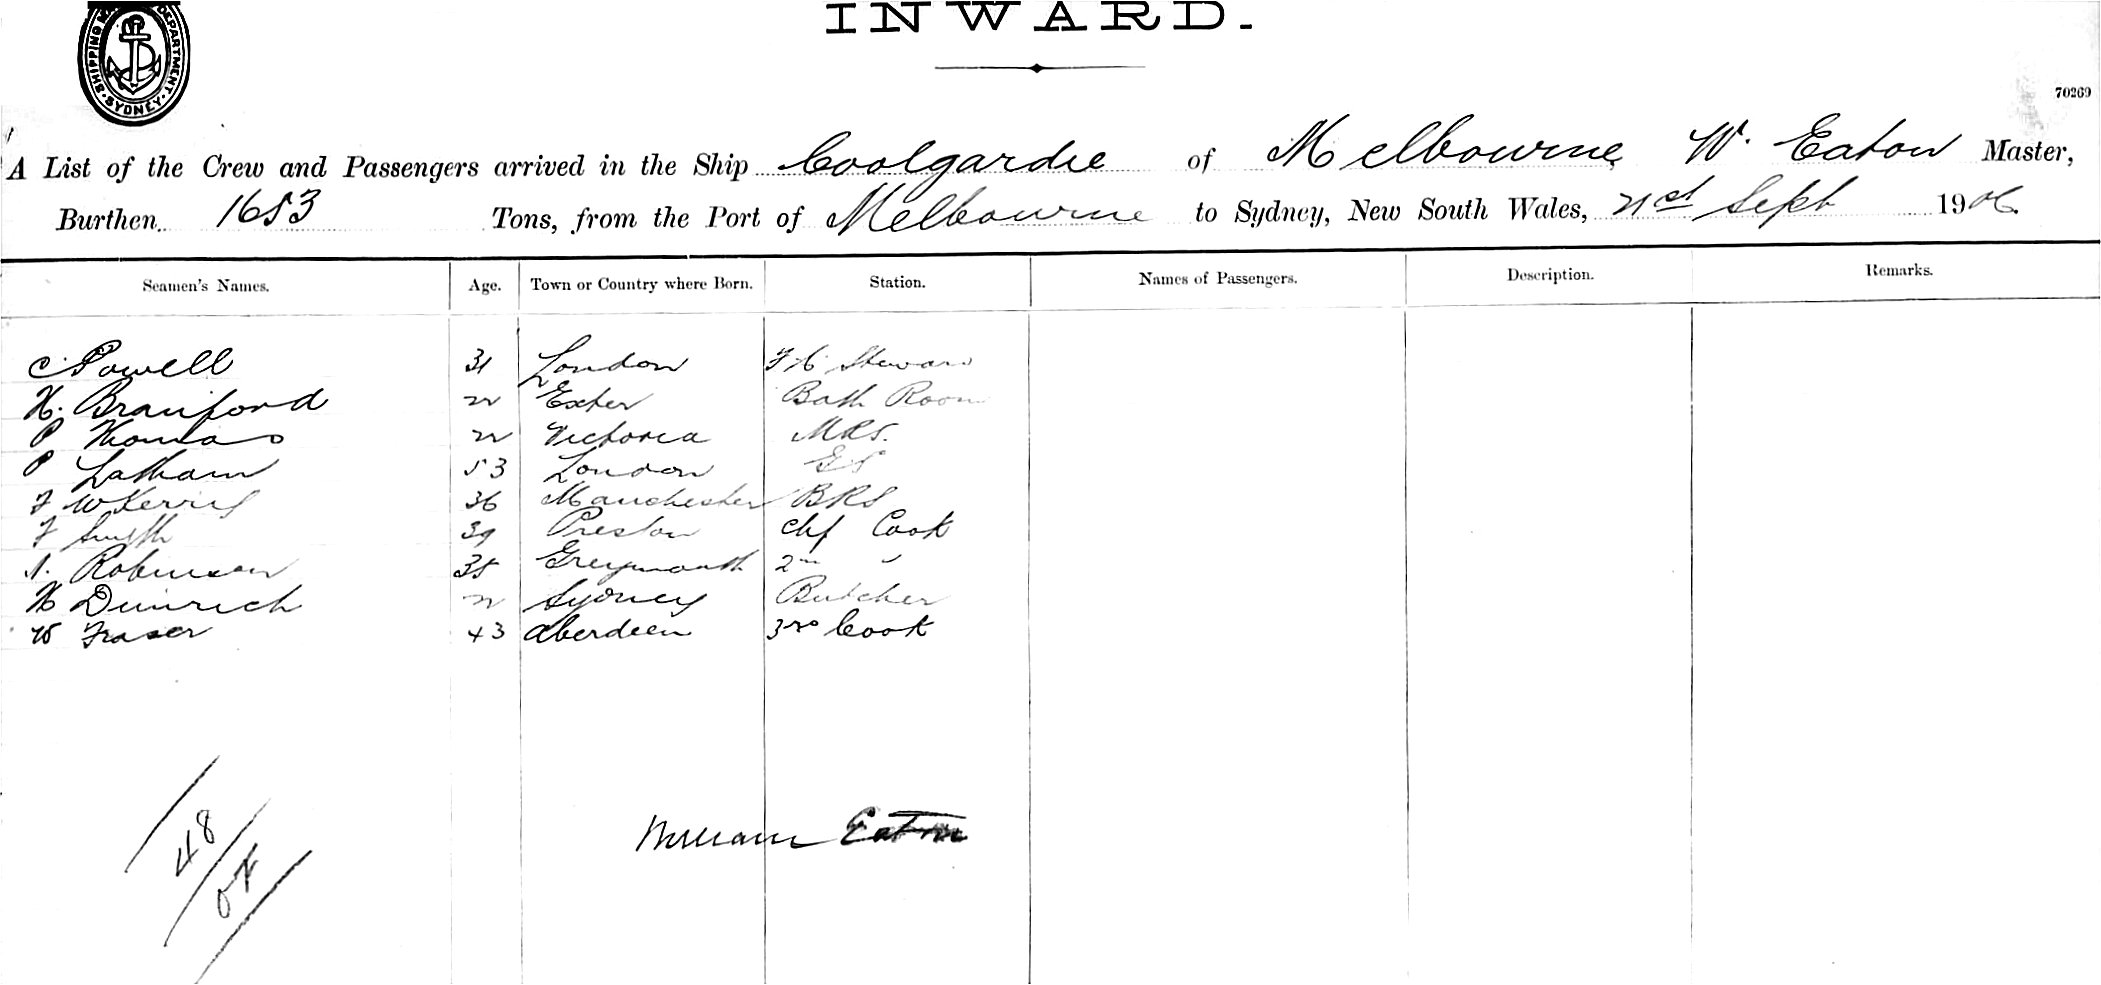 SHIPPING MA DEPARTMENT. SYDNEY.
INWARD.
70269
A List of the Crew and Passengers arrived in the Ship Coolgardie of Melbourne, W. Eaton Master,
Burthen 1653 Tons, from the Port of Melbourne to Sydney, New South Wales, 21st Sept 1906.
Seamen's Names. Age. Town or Country where Born. Station. Names of Passengers. Description. Remarks.
C Powell 31 London Steward
H. Branford 22 Exeter Bath Room
P Thomas 22 Victoria MRS.
P Latham 53 London GS
F W Kerris 36 Manchester BRS
F Smith 39 Preston Chf Cook
Robinson 35 Greymouth 2nd "
H Dinrich 22 Sydney Butcher
W Fraser 43 Aberdeen 3rd Cook
William Eaton
48